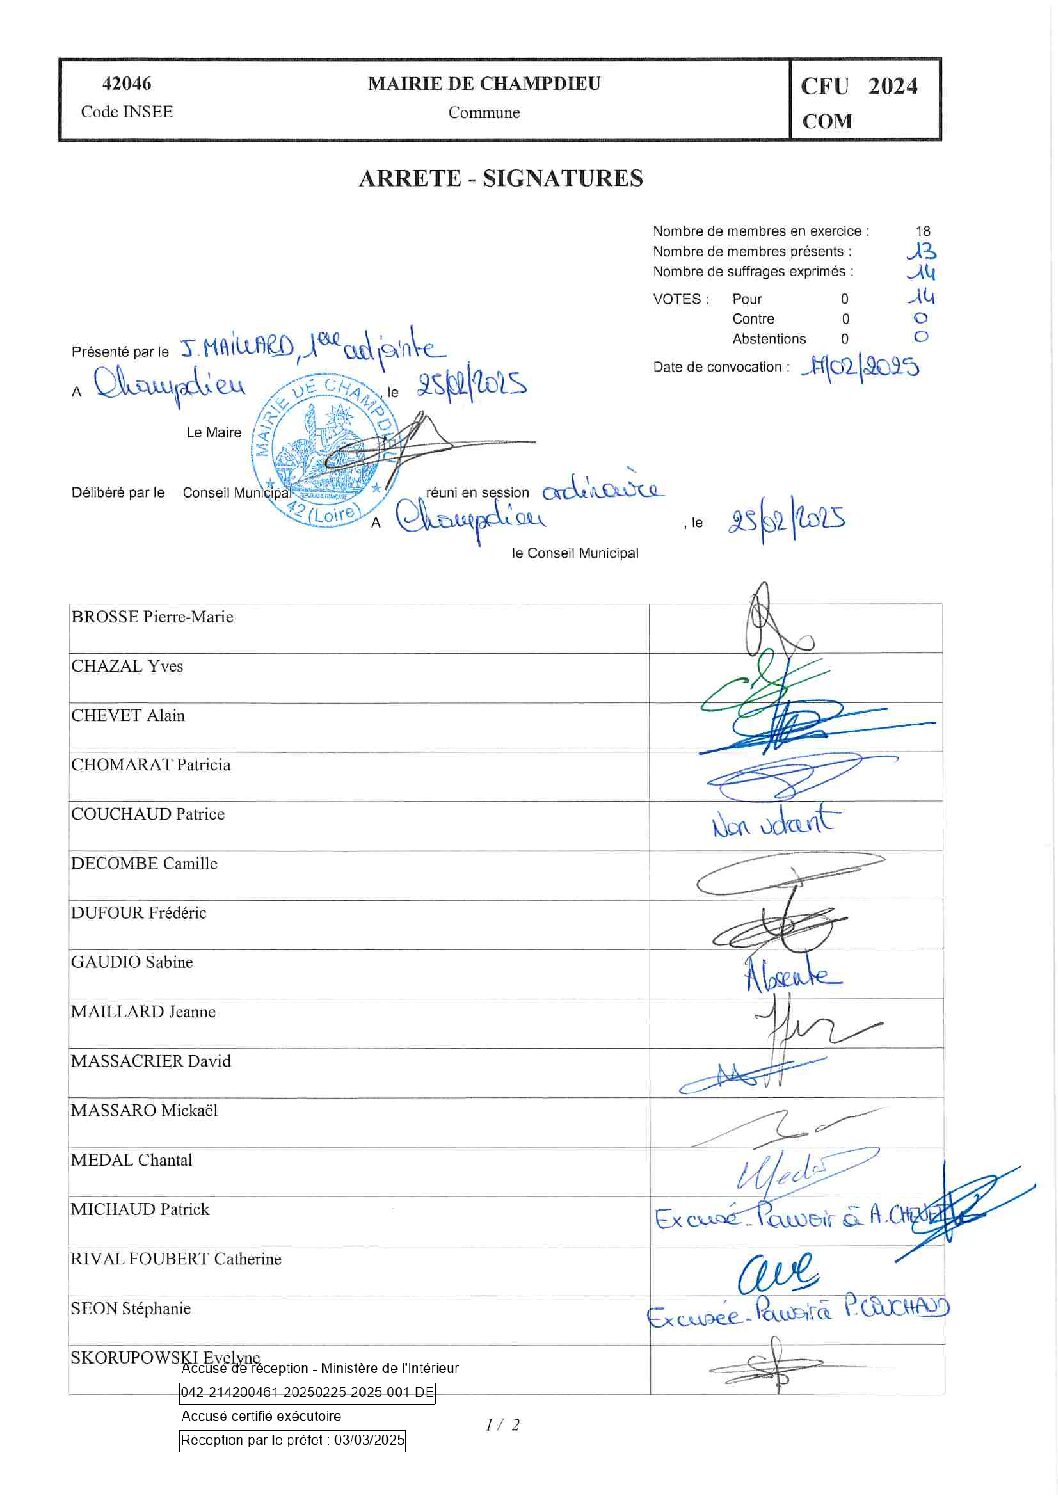 42046
Code INSEE
MAIRIE DE CHAMPDIEU
Commune
CFU 2024
COM
ARRETE - SIGNATURES
Nombre de membres en exercice : 18
Nombre de membres présents : 13
Nombre de suffrages exprimés : 14
VOTES : Pour 0 14
Contre 0 0
Abstentions 0 0
Date de convocation : 11/02/2025
Présenté par le J. MAILLARD, 1ère adjointe
A Champdieu , le 25/02/2025
Le Maire
MAIRIE DE CHAMPDIEU
42 (Loire)
Délibéré par le Conseil Municipal réuni en session ordinaire
A Champdieu , le 25/02/2025
le Conseil Municipal
BROSSE Pierre-Marie
CHAZAL Yves
CHEVET Alain
CHOMARAT Patricia
COUCHAUD Patrice Non votant
DECOMBE Camille
DUFOUR Frédéric
GAUDIO Sabine Absente
MAILLARD Jeanne
MASSACRIER David
MASSARO Mickaël
MEDAL Chantal
MICHAUD Patrick Excusé - Pouvoir à A. CHEVET
RIVAL FOUBERT Catherine
SEON Stéphanie Excusée - Pouvoir à P. COUCHAUD
SKORUPOWSKI Evelyne
Accusé de réception - Ministère de l'Intérieur
042-214200461-20250225-2025-001-DE
Accusé certifié exécutoire
Réception par le préfet : 03/03/2025
1 / 2